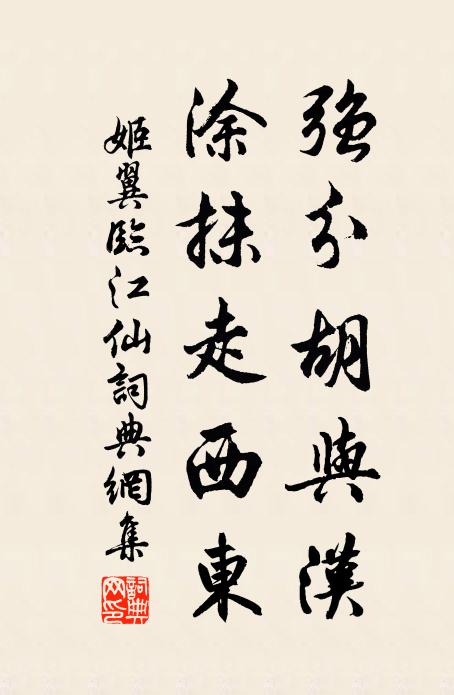 強分胡與漢
涂抹走西東
姬翼臨江仙詞典網集
詞典網印